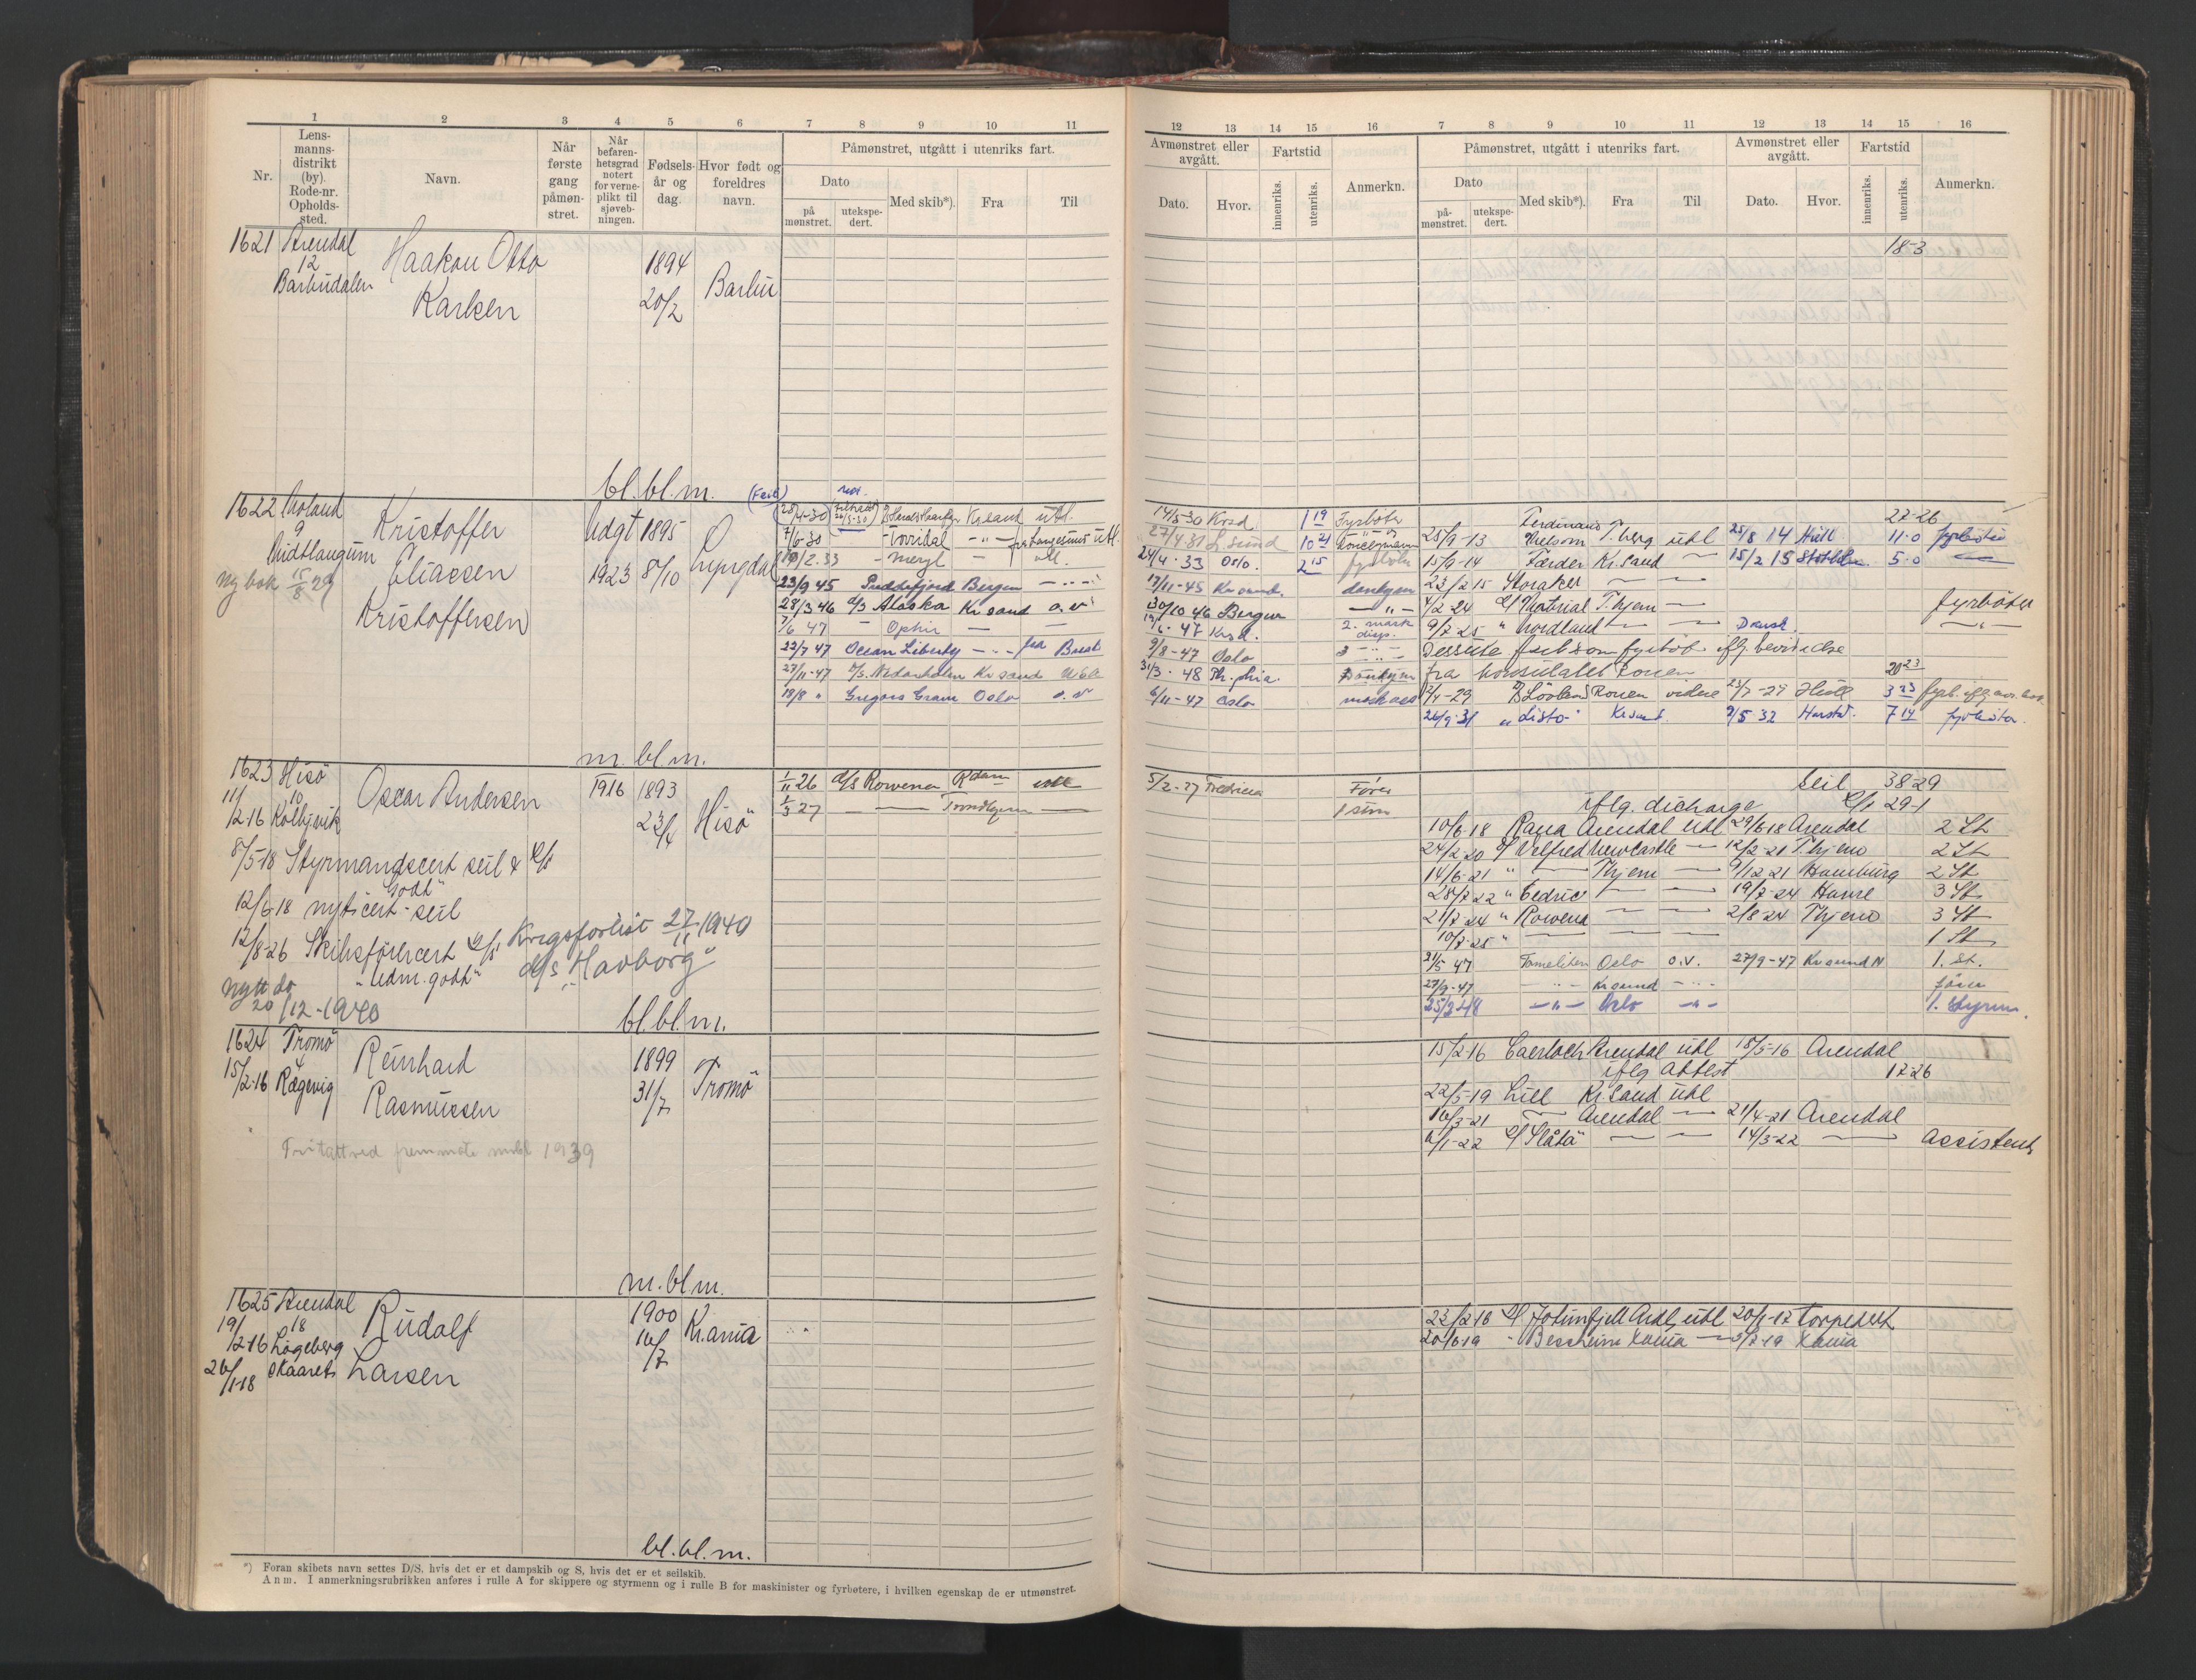 1 2 3 4 5 6 7 8 9 10 11
Nr.
Lens-
manns-
distrikt
(by).
Rode-nr.
Opholds-
sted.
Navn.
Når
første
gang
påmøn-
stret.
Når
befaren-
hetsgrad
notert
for verne-
plikt til
sjøveb-
ningen.
Fødsels-
år og
dag.
Hvor født og
foreldres
navn.
Påmønstret, utgått i utenriks fart.
Dato
på
mønstret.
utekspe-
dert.
Med skib*).
Fra
Til
1621 Arendal
12
Barbudalen
Haakon Otto
Karlsen
1894
20/2
Barbu
bl.bl.m.
1622 Moland
9
Ny bok 15/8 29
Kristoffer
Eliassen
Kristoffersen
Udgt 1895
1923 8/10
Lyngdal
28/4-30 Kr.sand utl.
7/6-30 Torridal
10/2.33 Meryl
23/9 45 Puddefjord Bergen
28/3 46 d/s Alaska Kr.sand o.v
7/6 47 Ophir
22/7 47 Ocean Liberty fra Brest
27/11-47 Kr sand
18/8 " Gregers Gram Oslo o.v
m.bl.m.
1623 Hisö
11/2-16 10
Kolbjvik
Oscar Andersen
1916 1893
23/4
Hisö
1/11 26 d/s Rowena Rdam utl
1/3 27 Trondhjem
8/5-18 Styrmandscert seil & D/s
"Godt"
12/6-18 nyt cert - seil
12/8-26 Skibsförercert D/s
"Udm. godt"
Krigsforlist 27/11 1940
d/s "Havborg"
Nytt do
20/12-1940
bl.bl.m.
1624 Tromö
4
15/2-16 Rægevig
Reinhard
Rasmussen
1899
31/7
Tromö
Fritatt ved fremmøte mobl 1939
m.bl.m.
1625 Arendal
19/2-16 18
Lögeberg
26/1-18 skaaret
Rudolf
Larsen
1900
16/7
Kr.ania
bl.bl.m.
*) Foran skibets navn settes D/S, hvis det er et dampskib og S, hvis det er et seilskib.
Anm. I anmerkningsrubrikken anføres i rulle A for skippere og styrmenn og i rulle B for maskinister og fyrbøtere, i hvilken egenskap de er utmønstret.
12 13 14 15 16 7 8 9 10 11 12 13 14 15 16
Avmønstret eller
avgått.
Dato.
Hvor.
Fartstid
innenriks.
utenriks.
Anmerkn.
Påmønstret, utgått i utenriks fart.
Dato
på-
mønstret.
utekspe-
dert.
Med skib*).
Fra
Til
Avmønstret eller
avgått.
Dato.
Hvor.
Fartstid
innenriks.
utenriks.
Anmerkn.
18-3
14/5-30 Krsd 1 19 Fyrböter
27/4 31 L.sund 10 21
24/4.33 Oslo. 2 15 fyrböter
17/11-45 Kr sund. donkym
30/10 46 Bergen
19/6-47 Krsd. 2. mask
disp.
9/8-47 Oslo 3
31/3.48 Donkym
6/11-47 Oslo
22-26
Ferdinand
25/9-13 Melsom T.berg utl 25/8 14 Hull 11-0 fyrböter
15/9-14 Færder Kr.sand 15/2 15 5-0
23/2 15 Storaker
4/2-24 T.hjem fyrböter
9/7-25 " Nordland
Dessute fart som fyrböt. iflg. bevidnelse
fra konsulatet Rouen 20 23
2/4-29 Rouen videre 23/7-29 Hull 3 23
26/9-31 "Lista" Kr.sand. 9/5 32 Harstad. 7 14 fyrböter.
5/2-27 Fredricia Förer
1 stm
Seil 38-29
iflg. dicharge D/s 29-1
10/6-18 Rana Arendal utl 29/6-18 Arendal 2 St
24/2-20 D/ Velfred Newcastle 12/2-21 Thjem 2 St
14/6-21 " Thjem 9/12 21 Hamburg 2 St
28/7-22 " Cedric 19/7-24 Havre 3 St
21/7-24 " Rowena 2/8-24 Thjem 3 St
10/7-25 " 1 St
21/5 47 Oslo o.v. 27/9-47 Kr sund N 1. st.
27/9-47 Kr sund förer
25/2 48 Oslo 1. Styrm.
15/2-16 Caerloch Arendal utl 18/5-16 Arendal
iflg attest 17-26
22/5-19 Lill Kr.sand utl
16/3-21 Arendal 21/4-21 Arendal
6/1-22 D/ Slåtå 14/3-22 Assistent
23/2-16 D/ Jotunfjell Ardl utl 20/1-17 torpedert
20/6-19 " Besseheim Kania 3/7-19 Kania